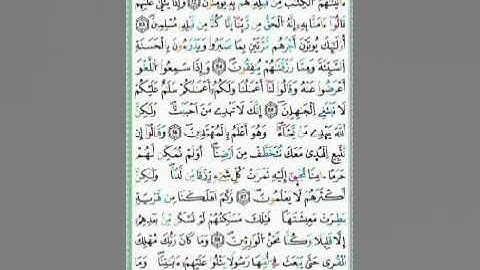 ءَاتَيْنَٰهُمُ ٱلْكِتَٰبَ مِن قَبْلِهِۦ هُم بِهِۦ يُؤْمِنُونَ ۝٥٢ وَإِذَا يُتْلَىٰ عَلَيْهِمْ
قَالُوٓا۟ ءَامَنَّا بِهِۦٓ إِنَّهُ ٱلْحَقُّ مِن رَّبِّنَآ إِنَّا كُنَّا مِن قَبْلِهِۦ مُسْلِمِينَ ۝٥٣
أُو۟لَٰٓئِكَ يُؤْتَوْنَ أَجْرَهُم مَّرَّتَيْنِ بِمَا صَبَرُوا۟ وَيَدْرَءُونَ بِٱلْحَسَنَةِ
ٱلسَّيِّئَةَ وَمِمَّا رَزَقْنَٰهُمْ يُنفِقُونَ ۝٥٤ وَإِذَا سَمِعُوا۟ ٱللَّغْوَ
أَعْرَضُوا۟ عَنْهُ وَقَالُوا۟ لَنَآ أَعْمَٰلُنَا وَلَكُمْ أَعْمَٰلُكُمْ سَلَٰمٌ عَلَيْكُمْ
لَا نَبْتَغِى ٱلْجَٰهِلِينَ ۝٥٥ إِنَّكَ لَا تَهْدِى مَنْ أَحْبَبْتَ وَلَٰكِنَّ
ٱللَّهَ يَهْدِى مَن يَشَآءُ ۚ وَهُوَ أَعْلَمُ بِٱلْمُهْتَدِينَ ۝٥٦ وَقَالُوٓا۟ إِن
نَّتَّبِعِ ٱلْهُدَىٰ مَعَكَ نُتَخَطَّفْ مِنْ أَرْضِنَآ ۚ أَوَلَمْ نُمَكِّن لَّهُمْ
حَرَمًا ءَامِنًا يُجْبَىٰٓ إِلَيْهِ ثَمَرَٰتُ كُلِّ شَىْءٍ رِّزْقًا مِّن لَّدُنَّا وَلَٰكِنَّ
أَكْثَرَهُمْ لَا يَعْلَمُونَ ۝٥٧ وَكَمْ أَهْلَكْنَا مِن قَرْيَةٍۭ
بَطِرَتْ مَعِيشَتَهَا ۖ فَتِلْكَ مَسَٰكِنُهُمْ لَمْ تُسْكَن مِّنۢ بَعْدِهِمْ
إِلَّا قَلِيلًا ۖ وَكُنَّا نَحْنُ ٱلْوَٰرِثِينَ ۝٥٨ وَمَا كَانَ رَبُّكَ مُهْلِكَ
ٱلْقُرَىٰ حَتَّىٰ يَبْعَثَ فِىٓ أُمِّهَا رَسُولًا يَتْلُوا۟ عَلَيْهِمْ ءَايَٰتِنَا ۚ وَمَا